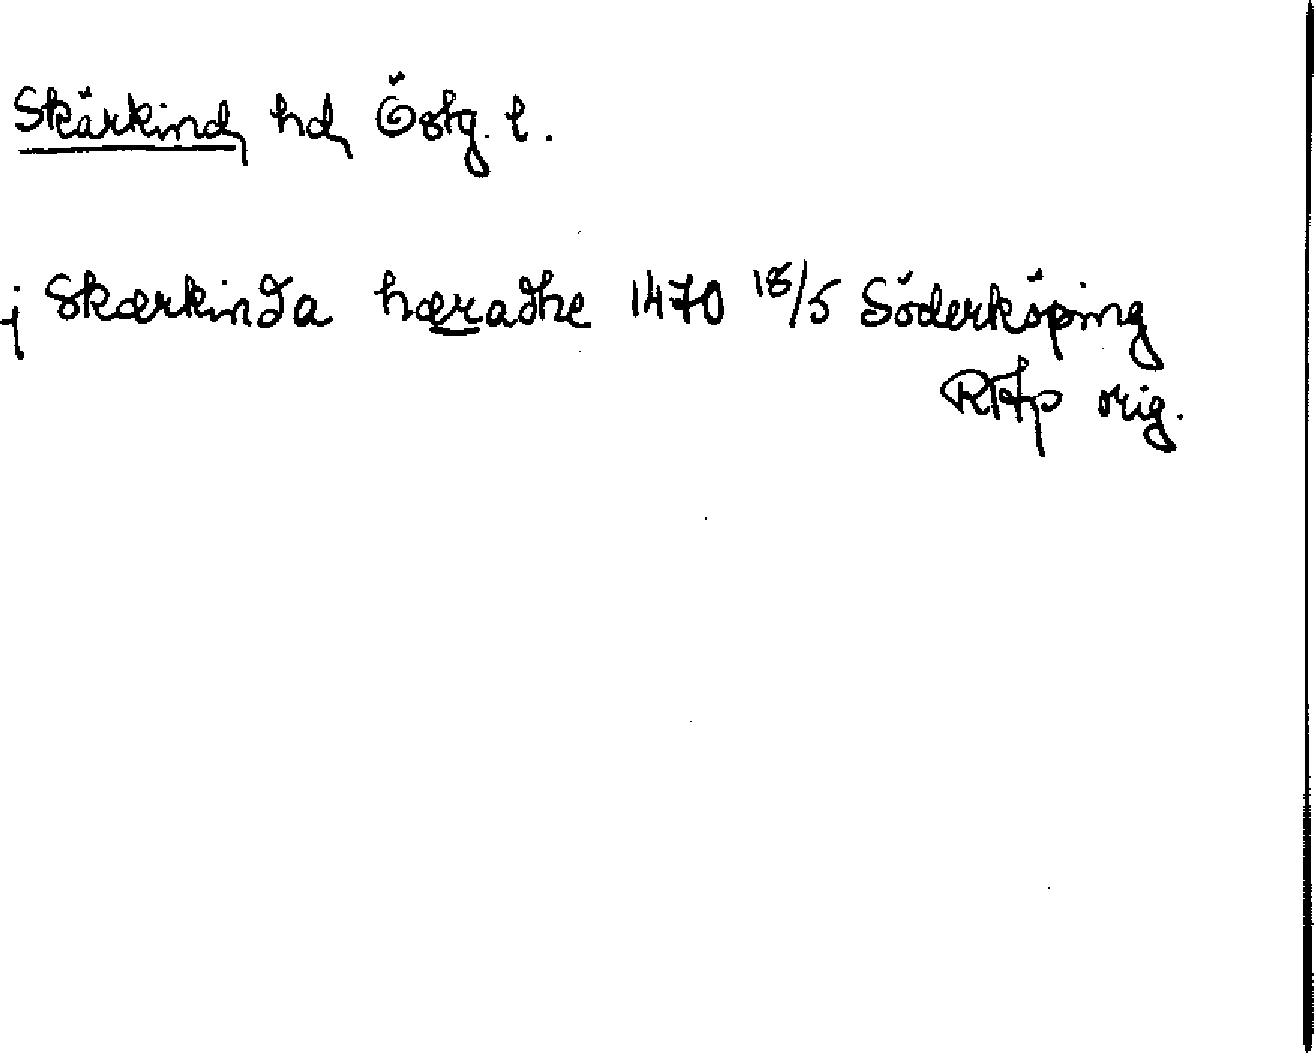 Skärkind hd Östg. l.
j Skærkinda hæradhe 1470 18/5 Söderköping
RAp orig.